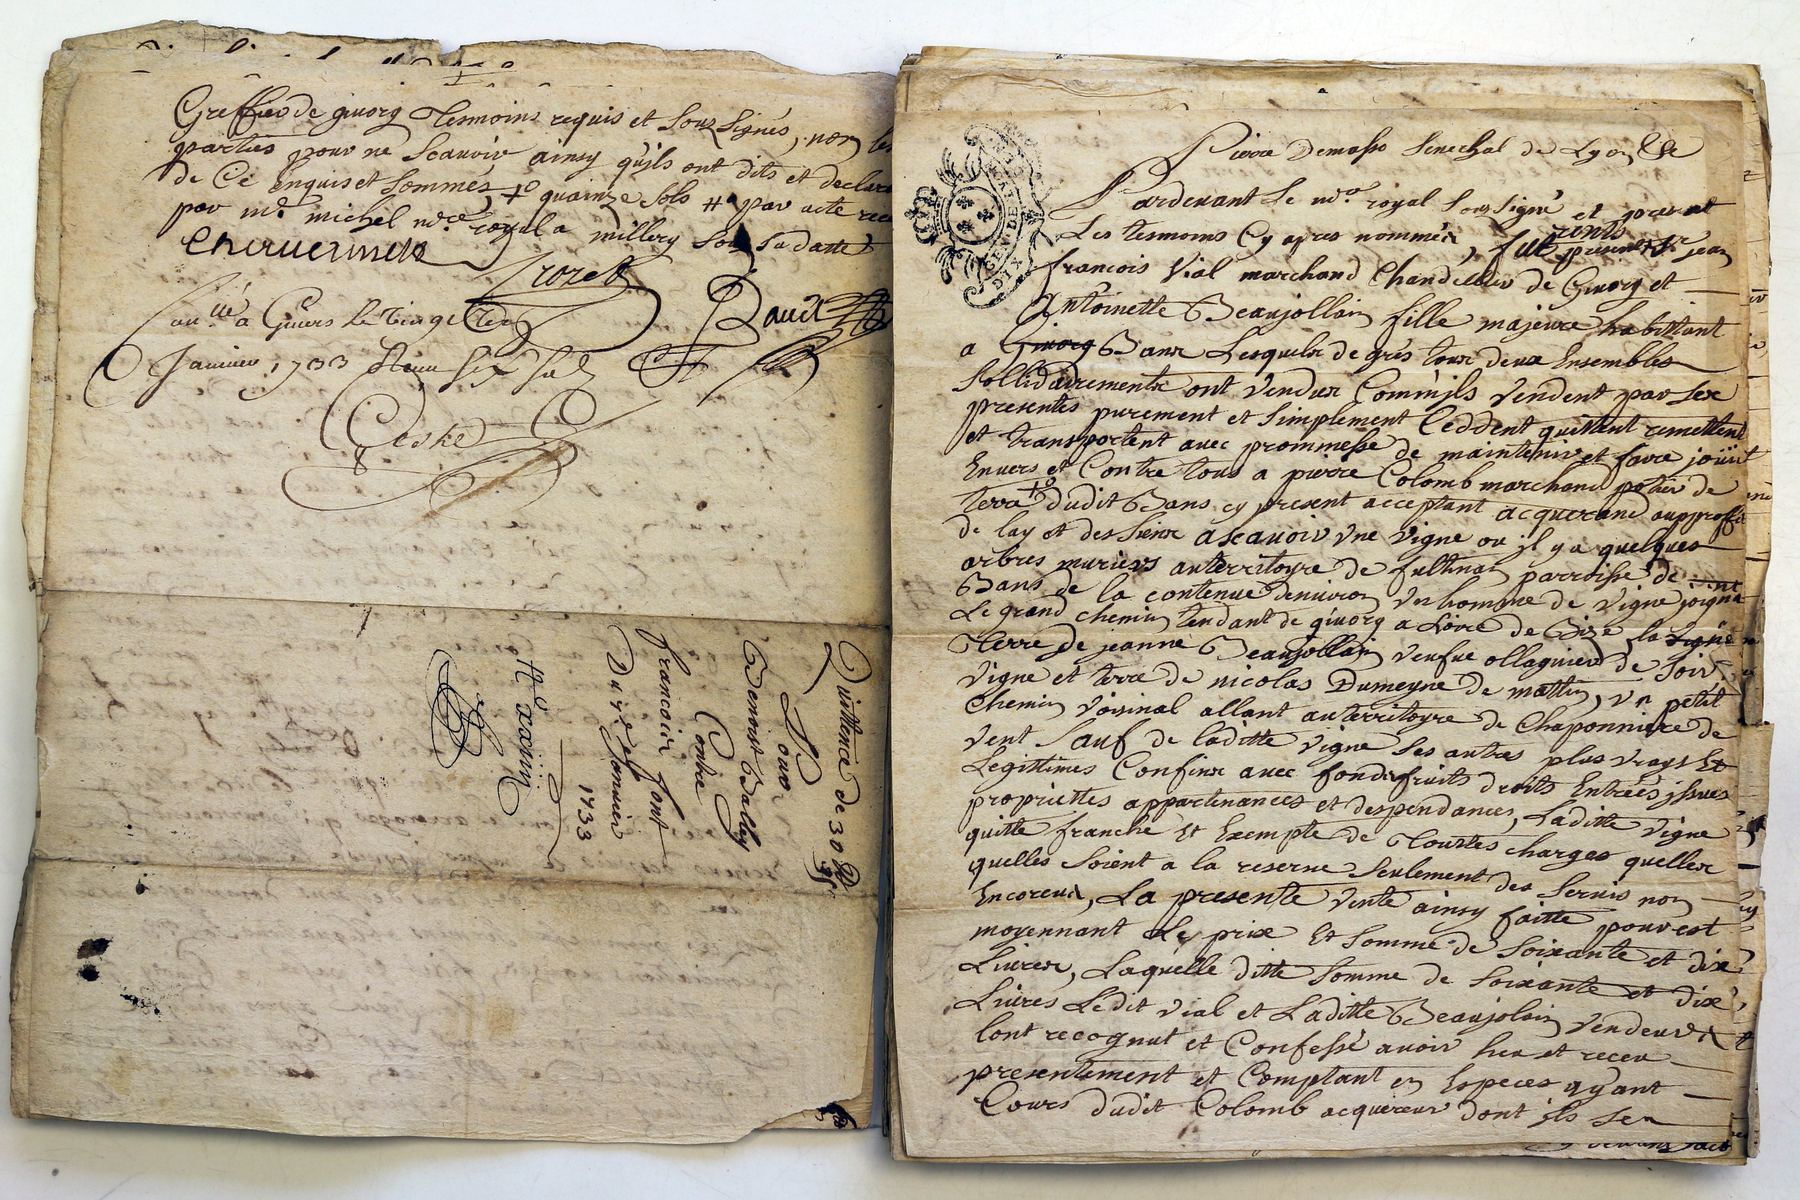 Greffier de givorg Tesmoins requis et souz signés, non les
parties pour ne scauoir ainsy quils ont dits et declaré
de Ce enquis et sommés, quainze sols par acte receu
par me. michel nre. royal a millery sous sa datte
Cheruerme
Trozet
Baudt
a Giuors Le
Januier 1733
Quittence de 30
Pour
Benoist Bally
Contre
francois font
Du Januier
1733
No xxiiij
Pierre Demasso Senechal de Lyon &c
Pardeuant Le nre. royal souz signé et present
Les tesmoins Cy apres nommés, furents presents Sr. jean
francois Vial marchand Chandellier de Giuorg et
Antoinette Beaujollain fille majeure habittant
a Giuorg Bans Lesquels de grés tous deux Ensembles
sollidairements ont vendus Comm'ils vendent par ses
presentes purement et simplement Ceddent quittant remettent
et transportent auec prommesse de maintenir et faire jouïr
Enuers et Contre tous a pierre Colomb marchand potier de
terre dudit Bans cy present acceptant acquerand auproffit
de luy et des siens ascauoir vne vigne ou jl y a quelques
arbres muriers auterritoyre de parroisse de
Bans de la contenue denuiron vn homme de vigne joignt
Le grand chemin tendant de giuorg a Loire de Bize, la
Terre de jeanne Beaujollain veufue ollagnier de soir,
vigne et terre de nicolas Dumeyne de mattin, vn petit
Chemin voisinal allant auterritoyre de Chaponniere de
vent sauf de laditte vigne ses autres plus vrays Et
Legittimes Confins auec fonds fruits droits Entrées jssues
propriettes appartenances et despendances, Laditte vigne
quitte franche Et Exempte de Touttes charges quelles
quelles soient a la reserue seulement des seruis non
Encoreus, La presente vente ainsy faitte pour est
moyennant Le prix Et somme de soixante et dix
Liures, Laquelle ditte somme de soixante et dix
Liures Ledit vial et Laditte Beaujolain vendeurs
lont recognut et Confessé auoir heu et receu
presentement et Comptant en Especes ayant
Cours dudit Colomb acquereur dont jls sen